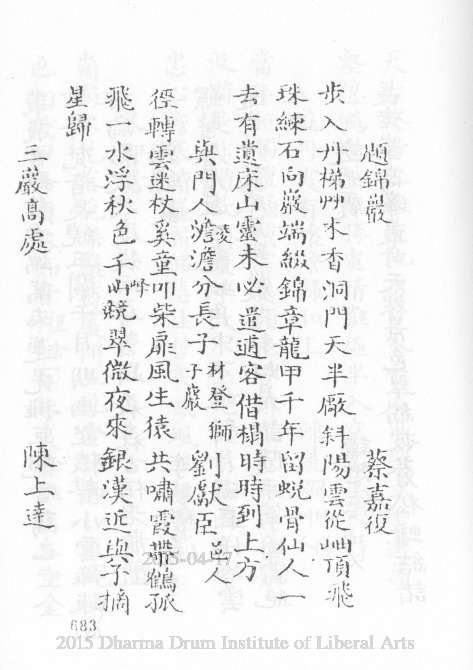 題錦巖　蔡嘉復
步入丹梯艸木杳洞門天半厰斜陽雲從岫頂飛
珠練石向巖端綴錦章龍甲千年留蛻骨仙人一
去有遺床山靈未必遣逋客借榻時時到上方
與門人凌澹澹分長子材登獅子巖　劉獻臣邑人
徑轉雲迷杖奚童叩柴扉風生猿共嘯霞帶鶴孤
飛一水浮秋色千峰競翠微夜來銀漢近與子摘
星歸
三巖高處　陳上達
683
2015-04-17
2015 Dharma Drum Institute of Liberal Arts